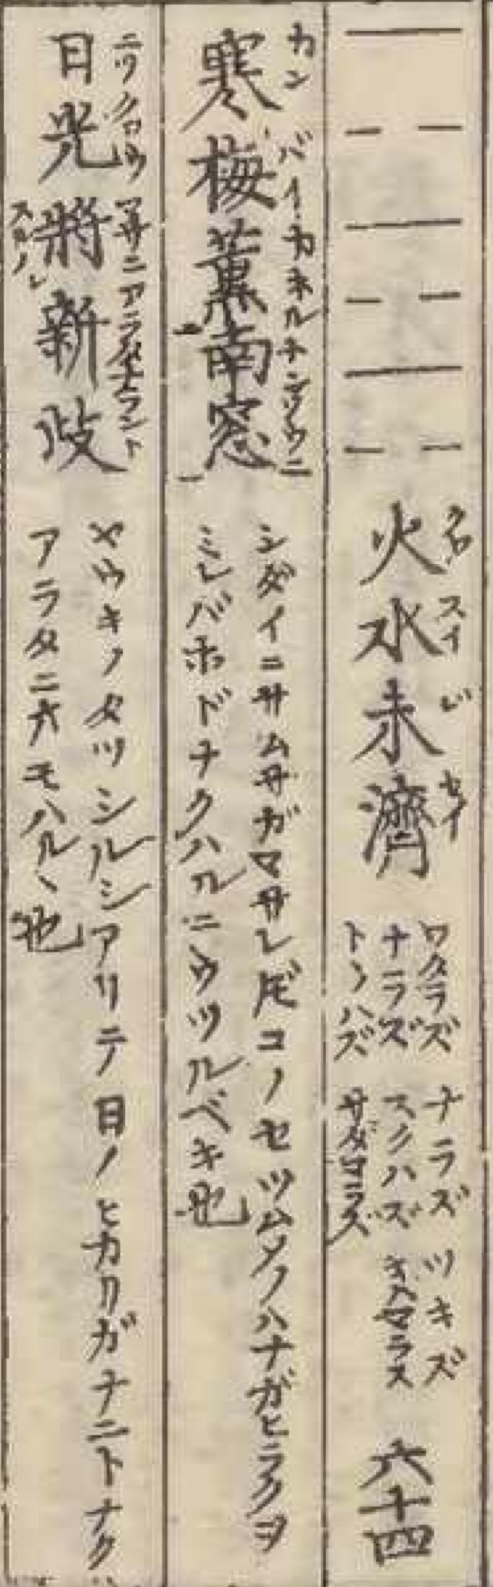 火水未濟
クワ スイ ビ セイ
ワタラズ ナラズ ツキズ
ナラズ スクハズ キハマラズ
トヽノハズ サダマラズ
六十四
寒梅薫南窓
カン バイ カホル ナンソウニ
シダイニサムサガマサレ𪜈コノセツムメノハナガヒラクヲ
ミレバホドナクハルニウツルベキ也
日光將新歧
ニツクロウ マサニアラタナラント
スルノレ
ヤウキノタツシルシアリテ日ノヒカリガナニトナク
アラタニオモハルヽ也